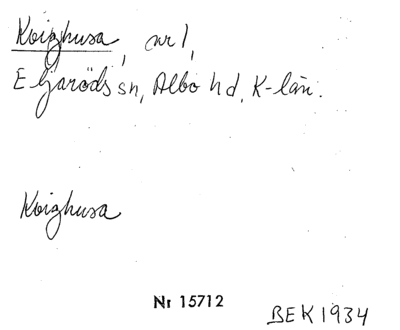 Kvighusa, nr 1,
E Ljaröds sn, Albo hd, K-län.
Kvighusa
Nr 15712
BEK 1934